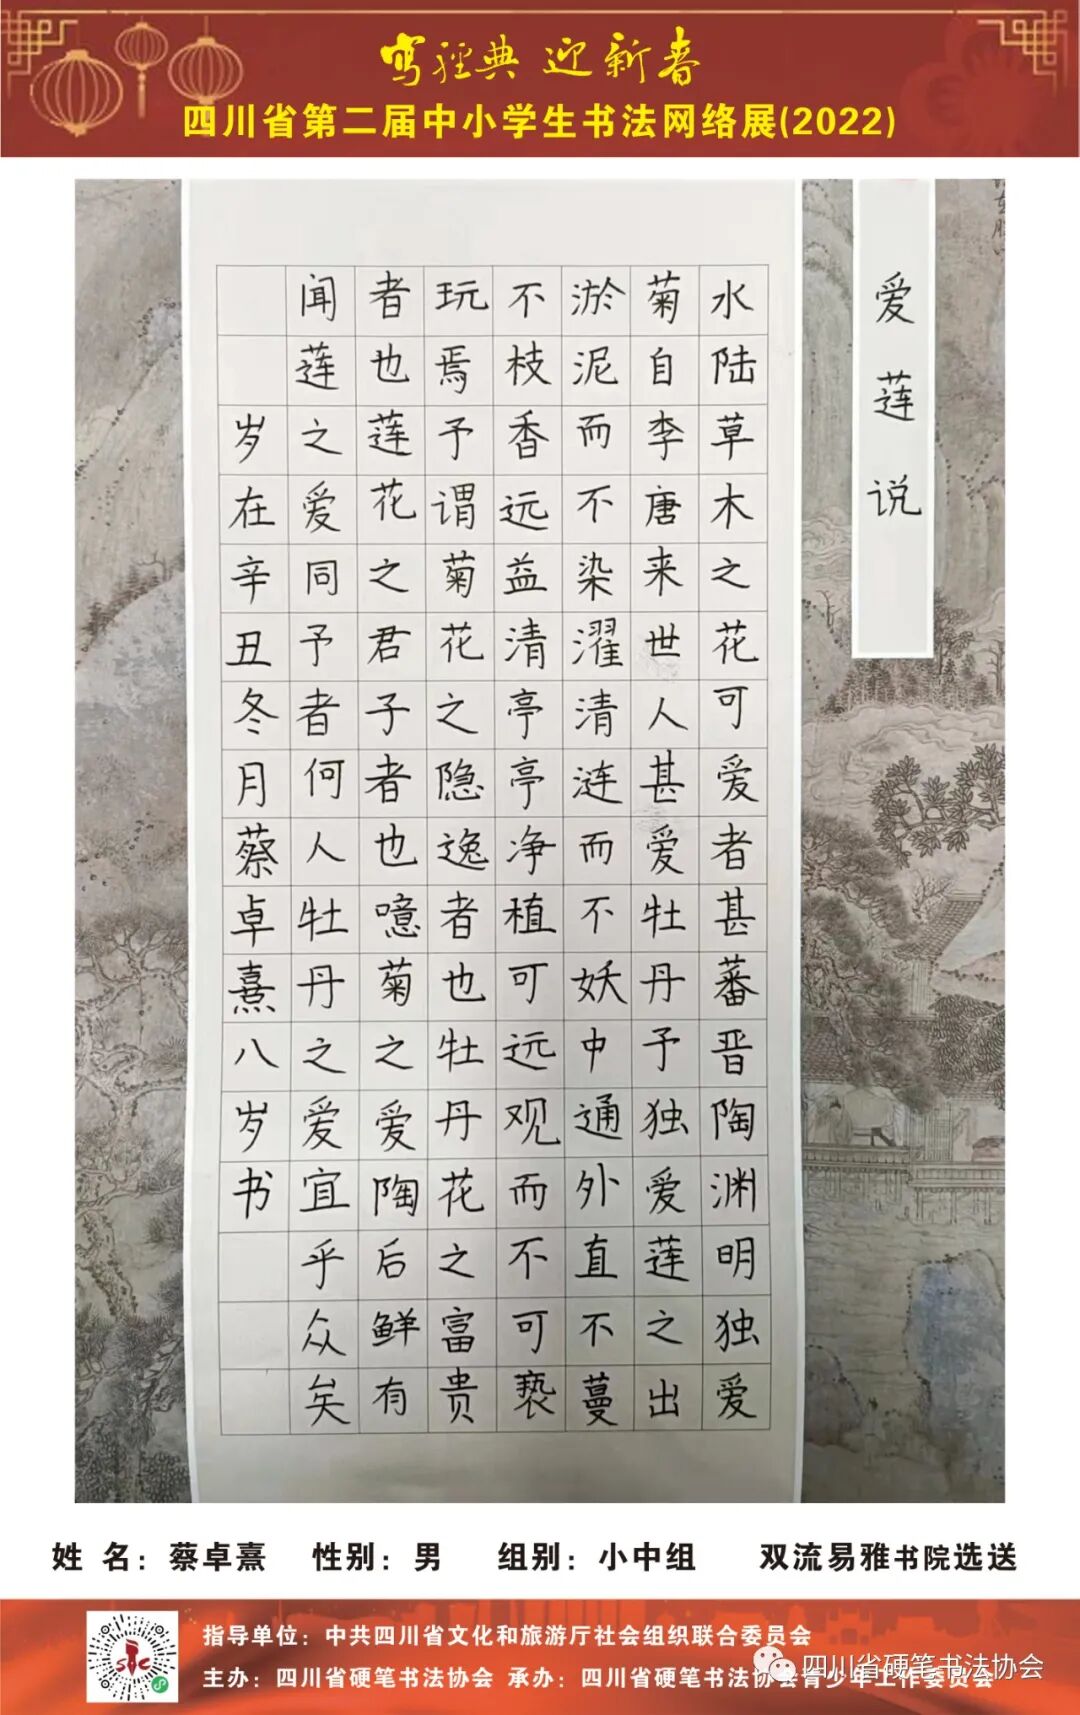 写经典 迎新春
四川省第二届中小学生书法网络展(2022)
爱莲说
水陆草木之花可爱者甚蕃晋陶渊明独爱
菊自李唐来世人甚爱牡丹予独爱莲之出
淤泥而不染濯清涟而不妖中通外直不蔓
不枝香远益清亭亭净植可远观而不可亵
玩焉予谓菊花之隐逸者也牡丹花之富贵
者也莲花之君子者也噫菊之爱陶后鲜有
闻莲之爱同予者何人牡丹之爱宜乎众矣
岁在辛丑冬月蔡卓熹八岁书
姓 名：蔡卓熹 性别：男 组别：小中组 双流易雅书院选送
指导单位：中共四川省文化和旅游厅社会组织联合委员会
主办：四川省硬笔书法协会 承办：四川省硬笔书法协会青少年工作委员会
四川省硬笔书法协会